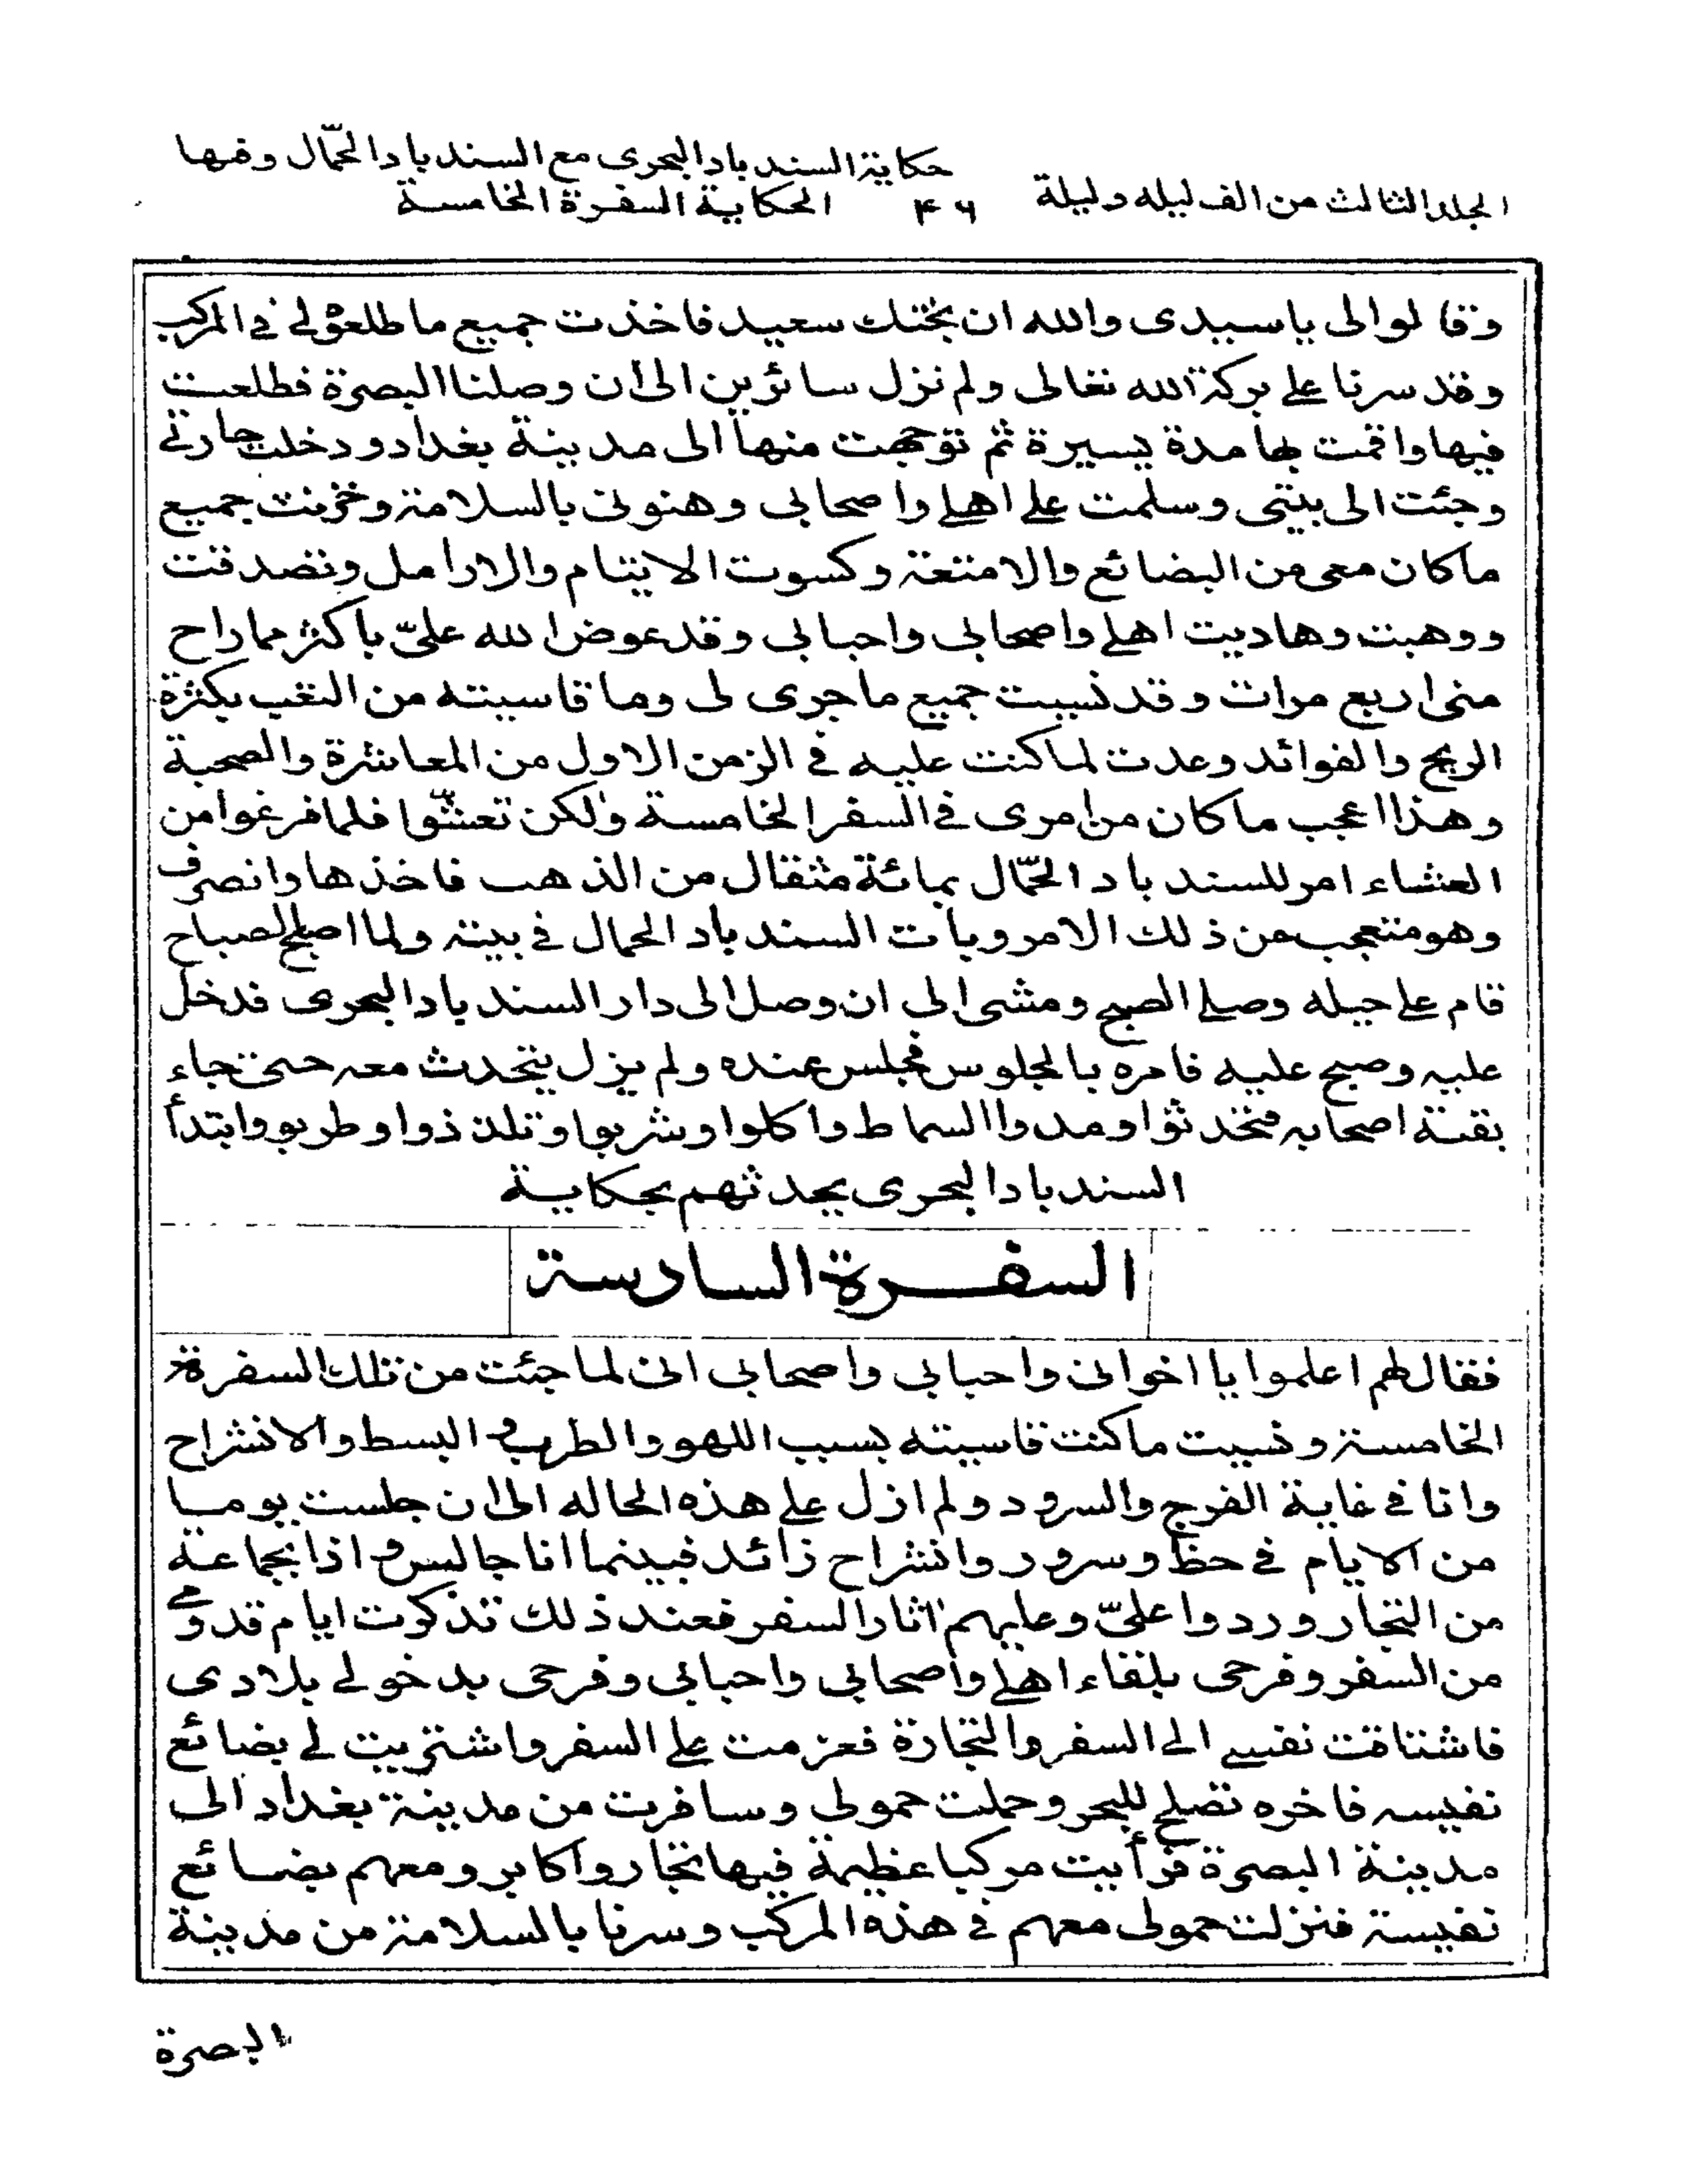 حكاية السندباد البحرى مع السندباد الحمّال وفيها
المجلد الثالث من الف ليله وليلة ۴۶ الحكاية السفرة الخامسة
وقالوا لى ياسيدى والله ان بختك سعيد فاخذت جميع ما طلعوه لے فے المركب
وقد سرنا علے بركة الله تعالى ولم نزل سائرين الى ان وصلنا البصرة فطلعت
فيها واقمت بها مدة يسيرة ثم توجهت منها الى مدينة بغداد ودخلت حارتے
وجئت الى بيتى وسلمت علے اهلے واصحابى وهنونى بالسلامة وخزنت جميع
ماكان معى من البضائع والامتعة وكسوت الايتام والارامل وتصدقت
ووهبت وهاديت اهلے واصحابى واحبابى وقد عوض الله علىّ باكثر مما راح
منى اربع مرات وقد نسيت جميع ماجرى لى وما قاسيته من التعب بكثرة
الربح والفوائد وعدت لماكنت عليه فے الزمن الاول من المعاشرة والصحبة
وهذا اعجب ماكان من امرى فے السفر الخامسة ولكن تعشّوا فلما فرغوا من
العشاء امر للسندباد الحمّال بمائة مثقال من الذهب فاخذها وانصرف
وهو متعجب من ذلك الامر وبات السندباد الحمال فے بيته ولما اصبح الصباح
قام علے حيله وصلے الصبح ومشى الى ان وصل الى دار السندباد البحرى فدخل
عليه وصبح عليه فامره بالجلوس فجلس عنده ولم يزل يتحدث معه حتى جاء
بقية اصحابه فتحدثوا ومدوا السماط واكلوا وشربوا وتلذذوا وطربو وابتدأ
السندباد البحرى يحدثهم بحكاية
السفرة السادسة
فقال لهم اعلموا يا اخوانى واحبابى واصحابى انى لما جئت من تلك السفرة
الخامسة ونسيت ماكنت قاسيته بسبب اللهو والطرب و البسط والانشراح
وانا فے غاية الفرح والسرور ولم ازل علے هذه الحاله الى ان جلست يوما
من الايام فے حظ وسرور وانشراح زائد فبينما انا جالس و اذا بجماعة
من التجار وردوا علىّ وعليهم اثار السفر فعند ذلك تذكرت ايام قدومے
من السفر وفرحى بلقاء اهلے واصحابى واحبابى وفرحى بدخولے بلادى
فاشتاقت نفسے الے السفر والتجارة فعزمت علے السفر واشتريت لے بضائع
نفيسه فاخره تصلح للبحر وحملت حمولى وسافرت من مدينة بغداد الى
مدينة البصرة فرأيت مركبا عظيمة فيها تجار واكابر ومعهم بضائع
نفيسة فنزلت حمولى معهم فے هذه المركب وسرنا بالسلامة من مدينة
البصرة